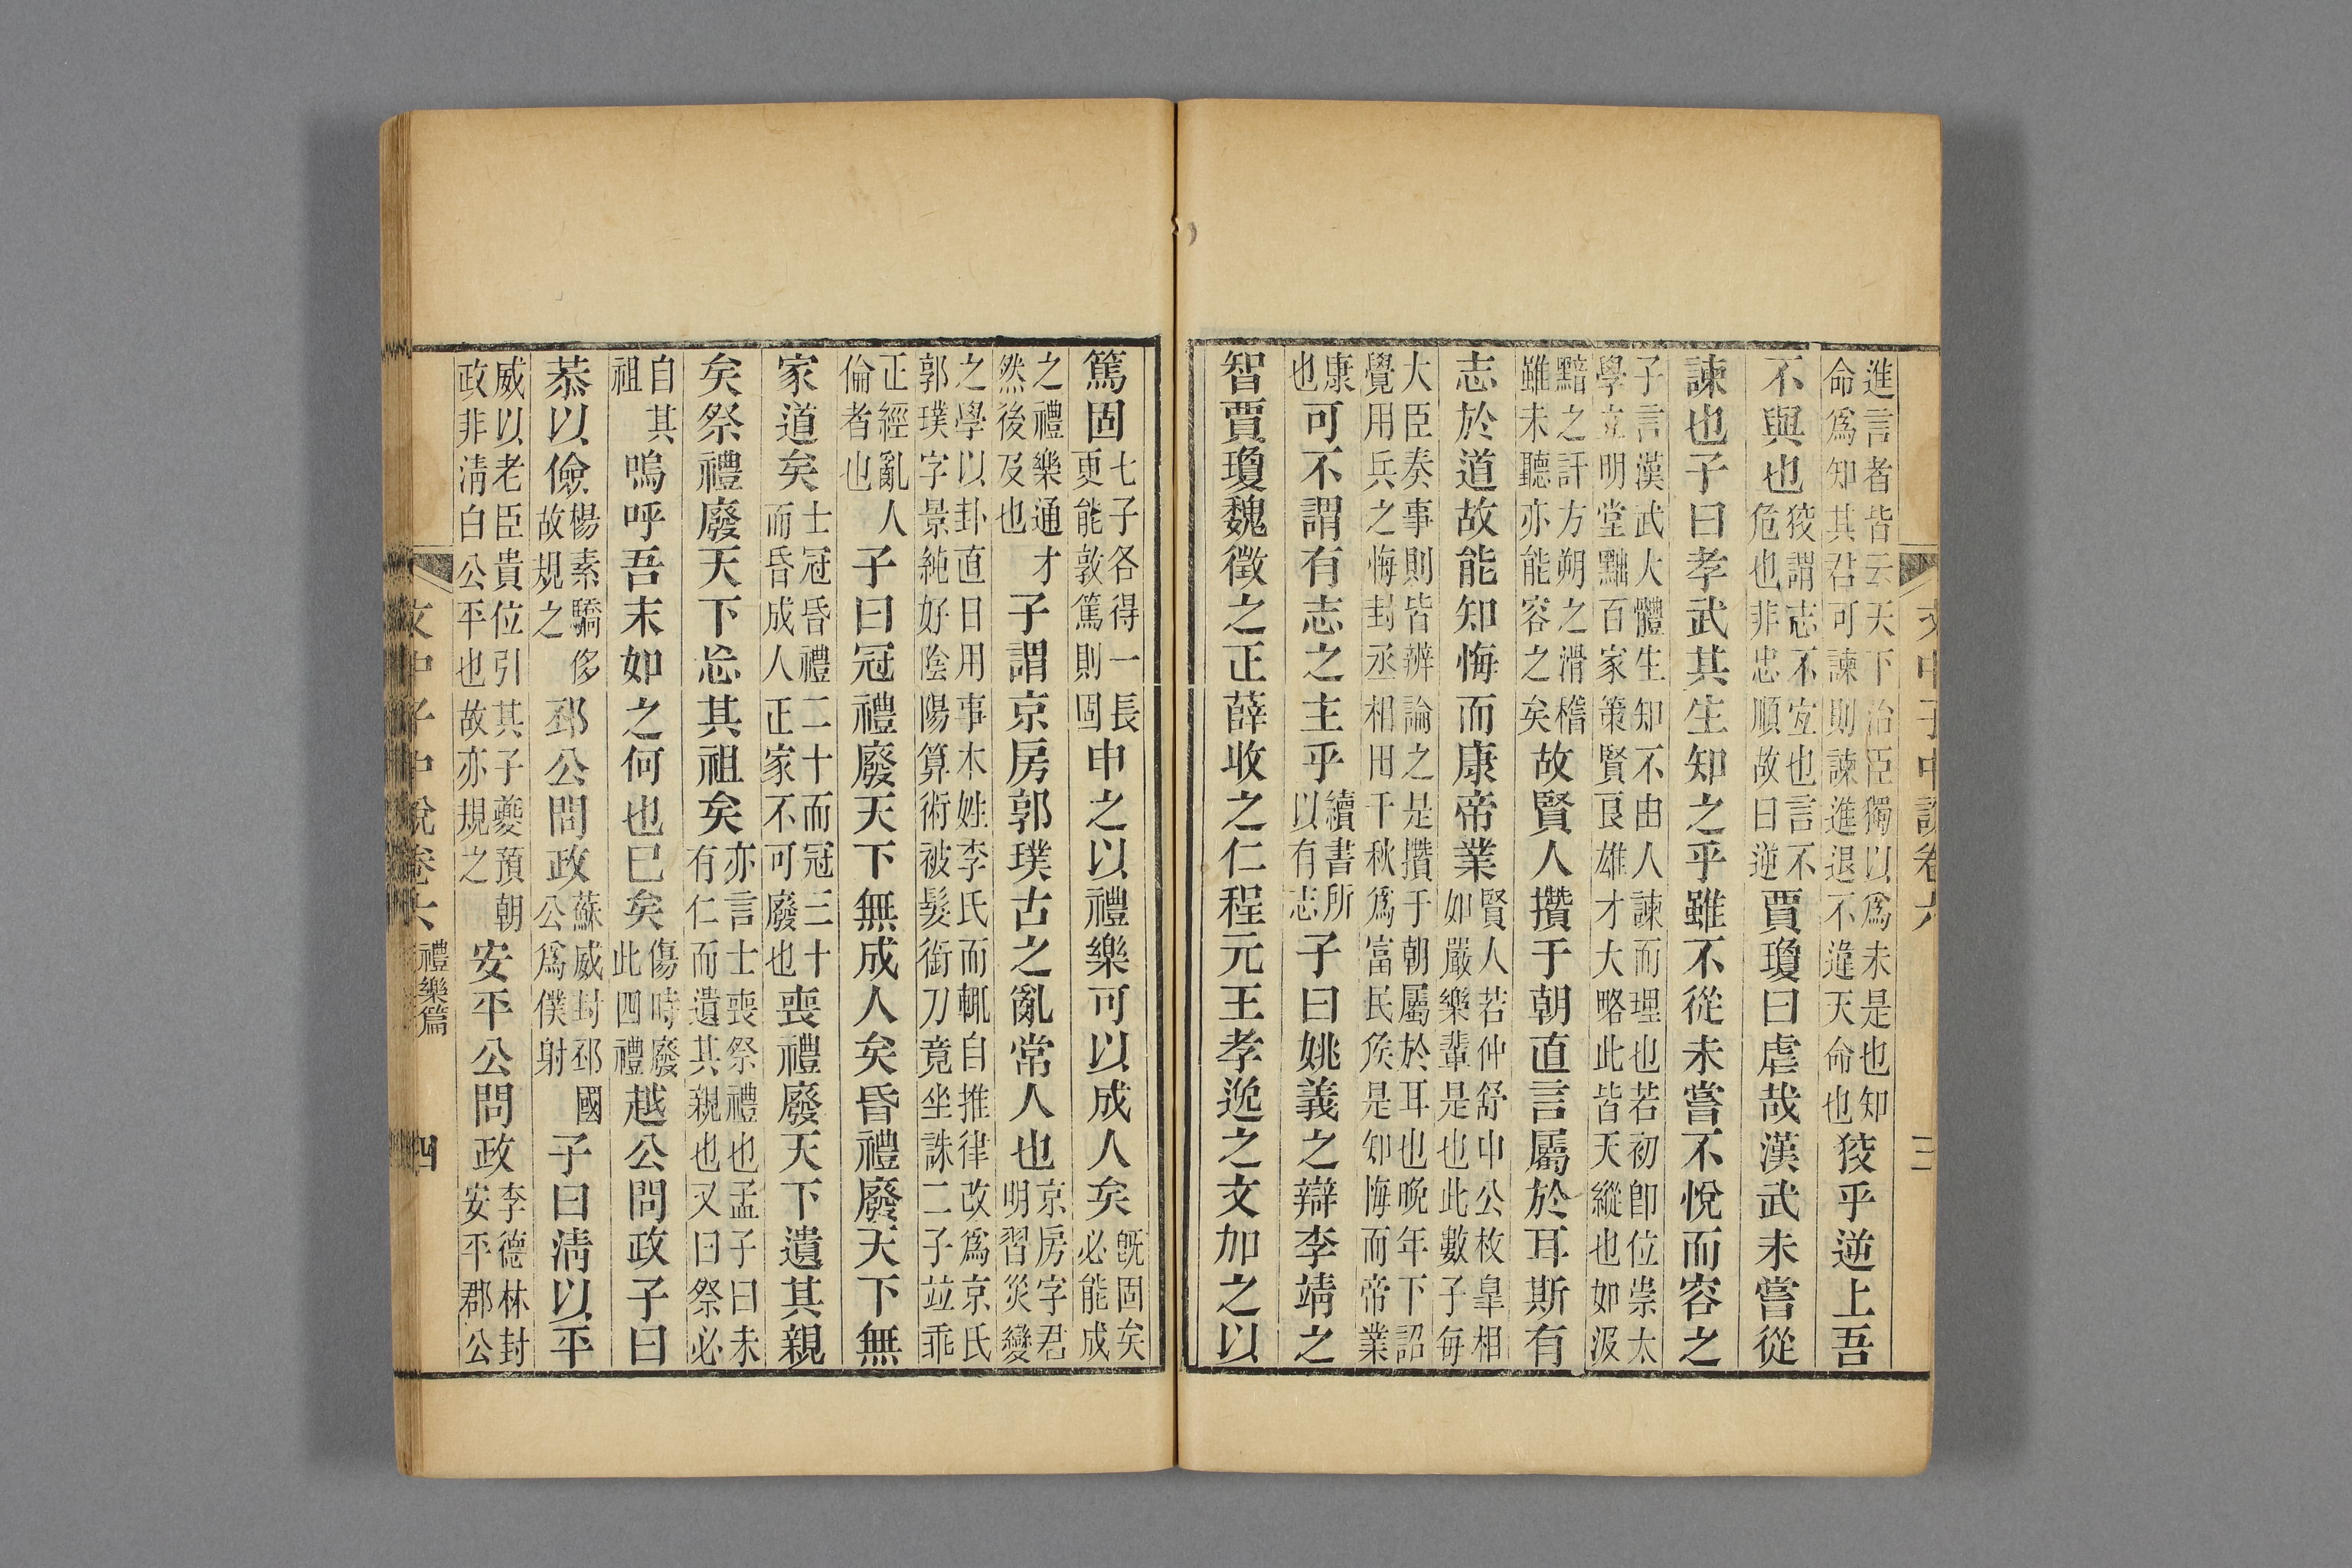 文中子中說卷六 三
進言者皆云天下治臣獨以爲未是也知
命爲知其君可諫則諫進退不違天命也
狡乎逆上吾
不與也
狡謂志不宐也言不
危也非忠順故曰逆
賈瓊曰虐哉漢武未嘗從
諫也子曰孝武其生知之乎雖不從未嘗不悅而容之
子言漢武大體生知不由人諫而理也若初卽位崇太
學立明堂黜百家策賢良雄才大略此皆天縱也如汲
黯之訐方朔之滑稽
雖未聽亦能容之矣
故賢人攢于朝直言屬於耳斯有
志於道故能知悔而康帝業
賢人若仲舒申公枚皋相
如嚴樂輩是也此數子每
大臣奏事則皆辨論之是攢于朝屬於耳也晚年下詔
覺用兵之悔封丞相田千秋爲富民侯是知悔而帝業
康
也
可不謂有志之主乎
續書所
以有志
子曰姚義之辯李靖之
智賈瓊魏徵之正薛收之仁程元王孝逸之文加之以
篤固
七子各得一長
更能敦篤則固
申之以禮樂可以成人矣
旣固矣
必能成
之禮樂通才
然後及也
子謂京房郭璞古之亂常人也
京房字君
明習災變
之學以卦直日用事木姓李氏而輒自推律改爲京氏
郭璞字景純好陰陽算術被髮銜刀竟坐誅二子竝乖
正經亂人
倫者也
子曰冠禮廢天下無成人矣昏禮廢天下無
家道矣
士冠昏禮二十而冠三十
而昏成人正家不可廢也
喪禮廢天下遺其親
矣祭禮廢天下忘其祖矣
亦言士喪祭禮也孟子曰未
有仁而遺其親也又曰祭必
自其
祖
嗚呼吾末如之何也已矣
傷時廢
此四禮
越公問政子曰
恭以儉
楊素驕侈
故規之
邳公問政
蘇威封邳國
公爲僕射
子曰淸以平
威以老臣貴位引其子夔預朝
政非淸白公平也故亦規之
安平公問政
李德林封
安平郡公
文中子中說卷六 禮樂篇 四